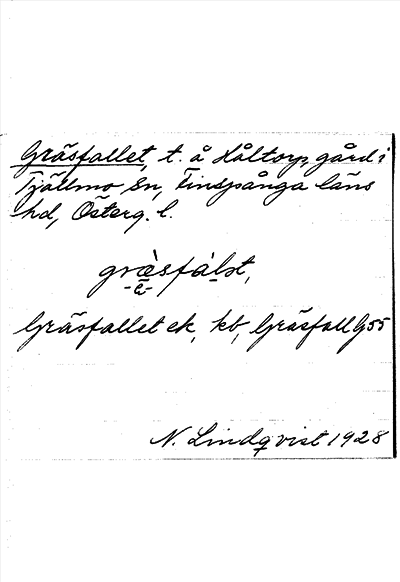 Gräsfallet, t. å Håltorp, gård i
Tjällmo sn, Finspånga läns
hd, Österg. l.
gräsfàlət,
-ē-
Gräsfallet ek, kb, Gräsfall G55
N. Lindqvist 1928